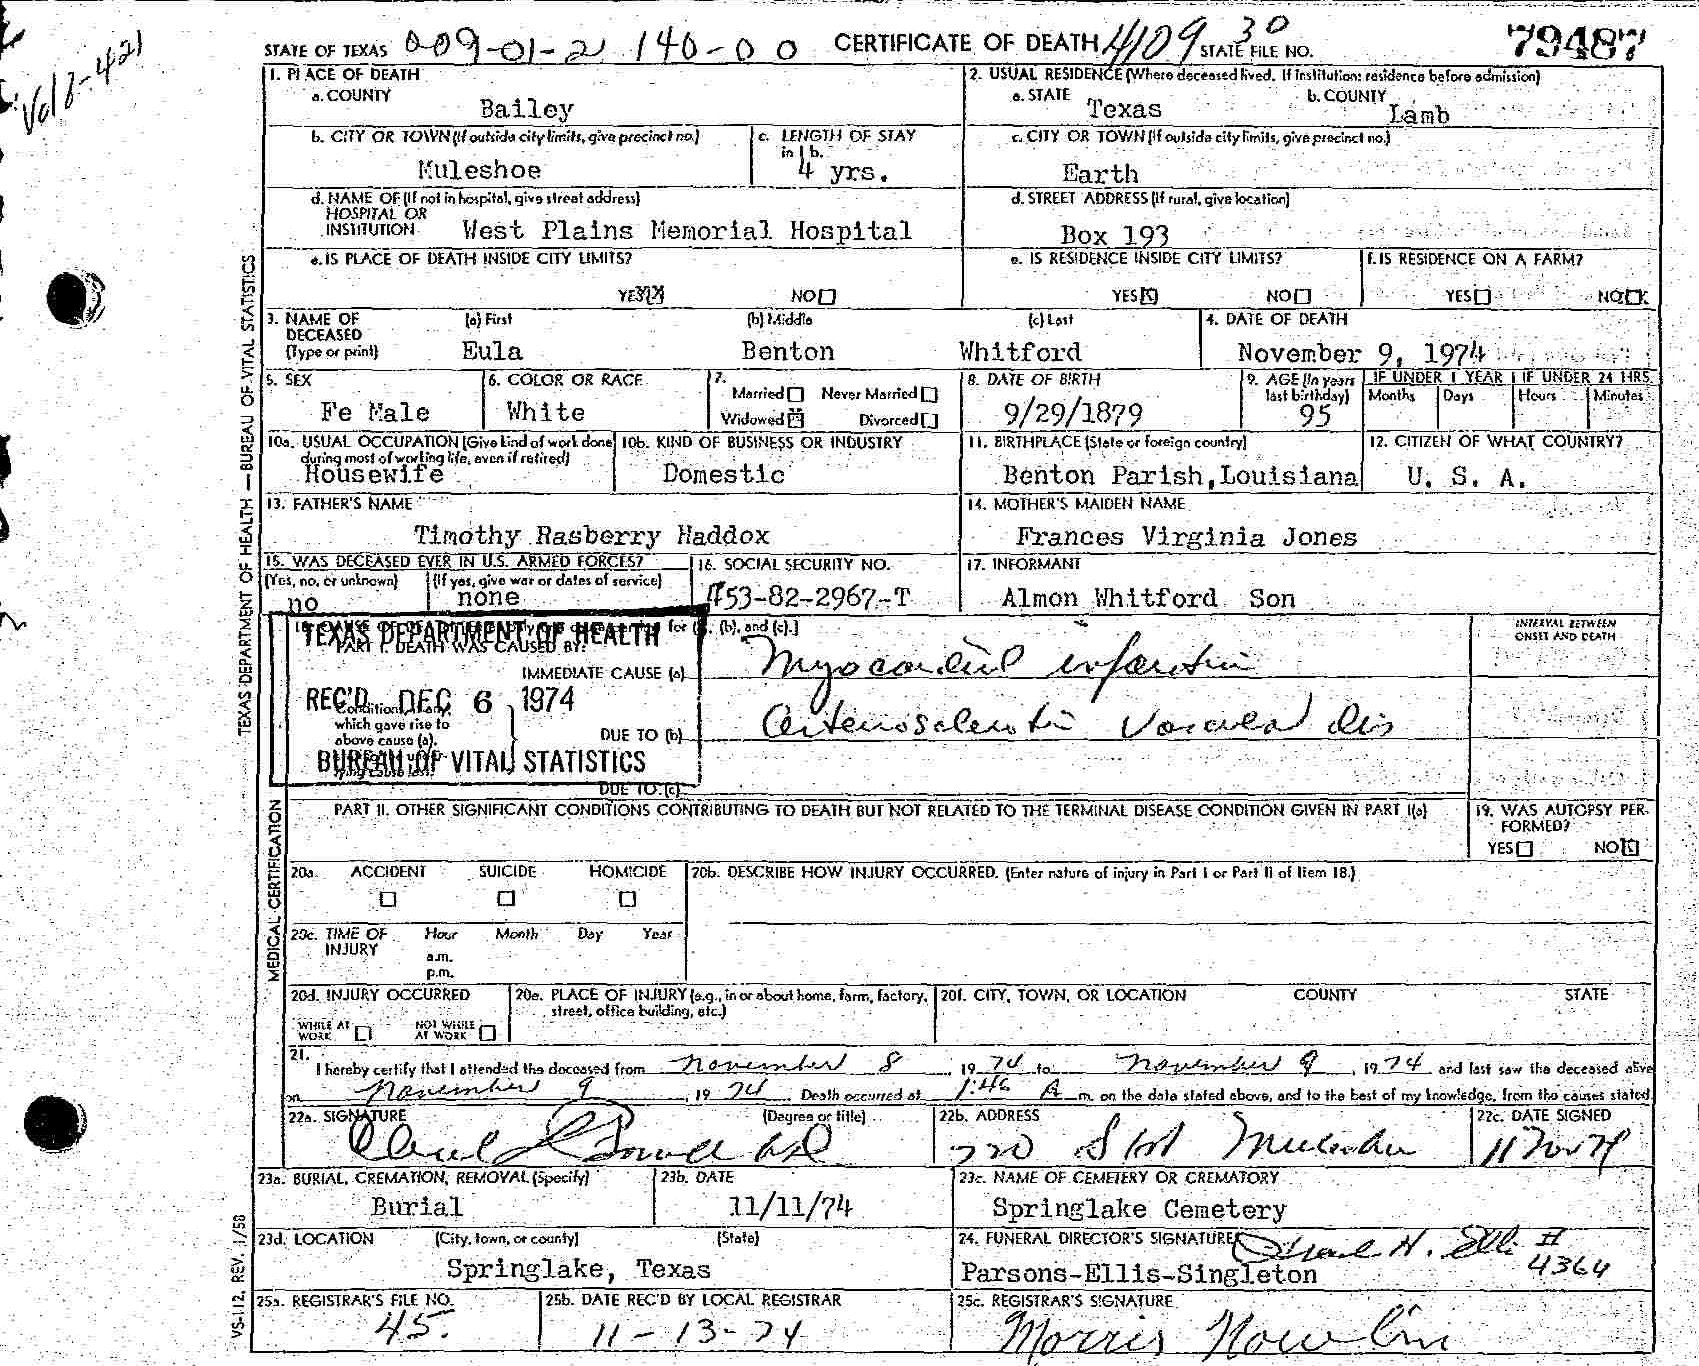 Vol 8-421
STATE OF TEXAS 009-01-2 140-00 CERTIFICATE OF DEATH 4109 30 STATE FILE NO. 79487
1. PLACE OF DEATH
a. COUNTY
Bailey
2. USUAL RESIDENCE (Where deceased lived. If institution: residence before admission)
a. STATE b. COUNTY
Texas Lamb
b. CITY OR TOWN (If outside city limits, give precinct no.)
Muleshoe
c. LENGTH OF STAY
in 1b.
4 yrs.
c. CITY OR TOWN (If outside city limits, give precinct no.)
Earth
d. NAME OF (If not in hospital, give street address)
HOSPITAL OR
INSTITUTION West Plains Memorial Hospital
d. STREET ADDRESS (If rural, give location)
Box 193
e. IS PLACE OF DEATH INSIDE CITY LIMITS?
YES X NO
e. IS RESIDENCE INSIDE CITY LIMITS?
YES X NO
f. IS RESIDENCE ON A FARM?
YES NO X
3. NAME OF DECEASED (Type or print)
(a) First (b) Middle (c) Last
Eula Benton Whitford
4. DATE OF DEATH
November 9, 1974
5. SEX
Fe Male
6. COLOR OR RACE
White
7.
Married Never Married
Widowed X Divorced
8. DATE OF BIRTH
9/29/1879
9. AGE (In years last birthday)
95
IF UNDER 1 YEAR IF UNDER 24 HRS.
Months Days Hours Minutes
10a. USUAL OCCUPATION (Give kind of work done during most of working life, even if retired)
Housewife
10b. KIND OF BUSINESS OR INDUSTRY
Domestic
11. BIRTHPLACE (State or foreign country)
Benton Parish, Louisiana
12. CITIZEN OF WHAT COUNTRY?
U. S. A.
13. FATHER'S NAME
Timothy Rasberry Haddox
14. MOTHER'S MAIDEN NAME
Frances Virginia Jones
15. WAS DECEASED EVER IN U.S. ARMED FORCES?
(Yes, no, or unknown) (If yes, give war or dates of service)
no none
16. SOCIAL SECURITY NO.
453-82-2967-T
17. INFORMANT
Almon Whitford Son
for (a), (b), and (c).]
TEXAS DEPARTMENT OF HEALTH
PART I. DEATH WAS CAUSED BY:
IMMEDIATE CAUSE (a) Myocardial infarction
REC'D DEC 6 1974
Conditions, if any, which gave rise to above cause (a),
DUE TO (b) Arteriosclerotic Vascular dis
BUREAU OF VITAL STATISTICS
lying cause last.
DUE TO (c)
INTERVAL BETWEEN
ONSET AND DEATH
PART II. OTHER SIGNIFICANT CONDITIONS CONTRIBUTING TO DEATH BUT NOT RELATED TO THE TERMINAL DISEASE CONDITION GIVEN IN PART I(a)
19. WAS AUTOPSY PERFORMED?
YES NO X
20a. ACCIDENT SUICIDE HOMICIDE
20b. DESCRIBE HOW INJURY OCCURRED. (Enter nature of injury in Part I or Part II of Item 18.)
20c. TIME OF INJURY Hour Month Day Year
a.m.
p.m.
20d. INJURY OCCURRED
WHILE AT WORK NOT WHILE AT WORK
20e. PLACE OF INJURY (e.g., in or about home, farm, factory, street, office building, etc.)
20f. CITY, TOWN, OR LOCATION COUNTY STATE
21.
I hereby certify that I attended the deceased from November 8, 1974 to November 9, 1974 and last saw the deceased alive
on November 9, 1974. Death occurred at 1:46 A m. on the date stated above, and to the best of my knowledge, from the causes stated.
22a. SIGNATURE (Degree or title)
22b. ADDRESS
220 S 1st Muleshoe
22c. DATE SIGNED
11 Nov 74
23a. BURIAL, CREMATION, REMOVAL (Specify)
Burial
23b. DATE
11/11/74
23c. NAME OF CEMETERY OR CREMATORY
Springlake Cemetery
23d. LOCATION (City, town, or county) (State)
Springlake, Texas
24. FUNERAL DIRECTOR'S SIGNATURE
H. Ellis II
4364
Parsons-Ellis-Singleton
25a. REGISTRAR'S FILE NO.
45.
25b. DATE REC'D BY LOCAL REGISTRAR
11-13-74
25c. REGISTRAR'S SIGNATURE
Morris Nowlin
TEXAS DEPARTMENT OF HEALTH — BUREAU OF VITAL STATISTICS
MEDICAL CERTIFICATION
VS-112, REV. 1/58